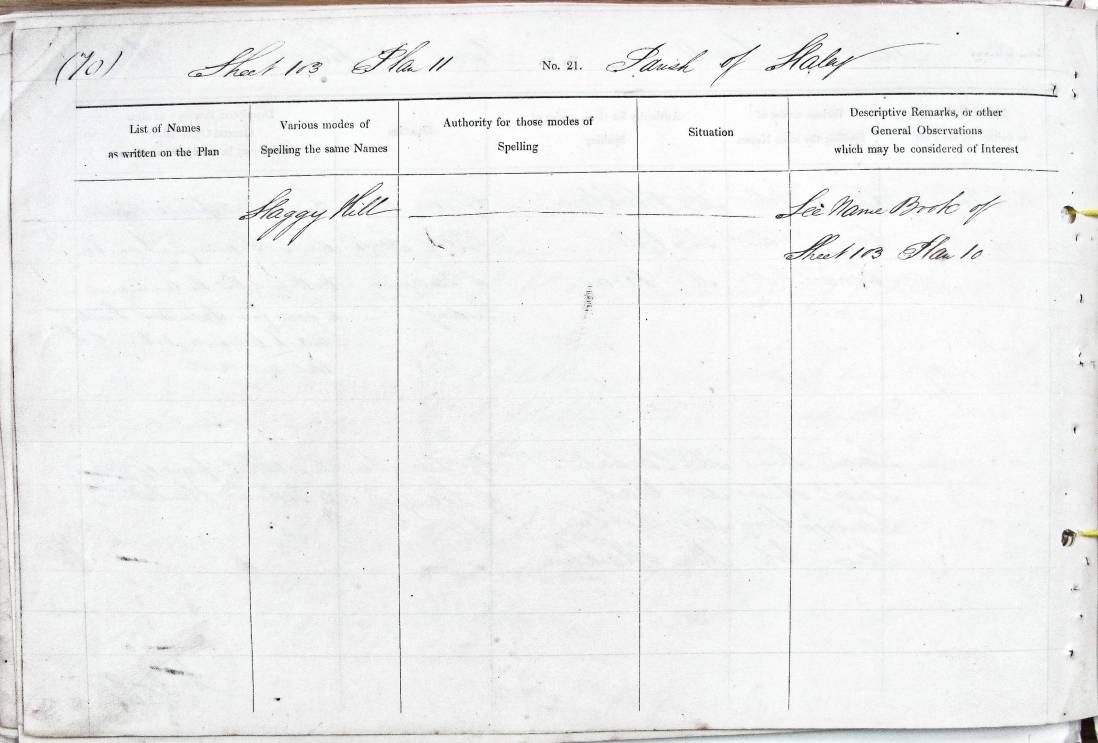 (70) Sheet 103 Plan 11 No. 21. Parish of Slaley
List of Names
as written on the Plan
Various modes of
Spelling the same Names
Authority for those modes of
Spelling
Situation
Descriptive Remarks, or other
General Observations
which may be considered of Interest
Slaggy Hill See Name Book of
Sheet 103 Plan 10